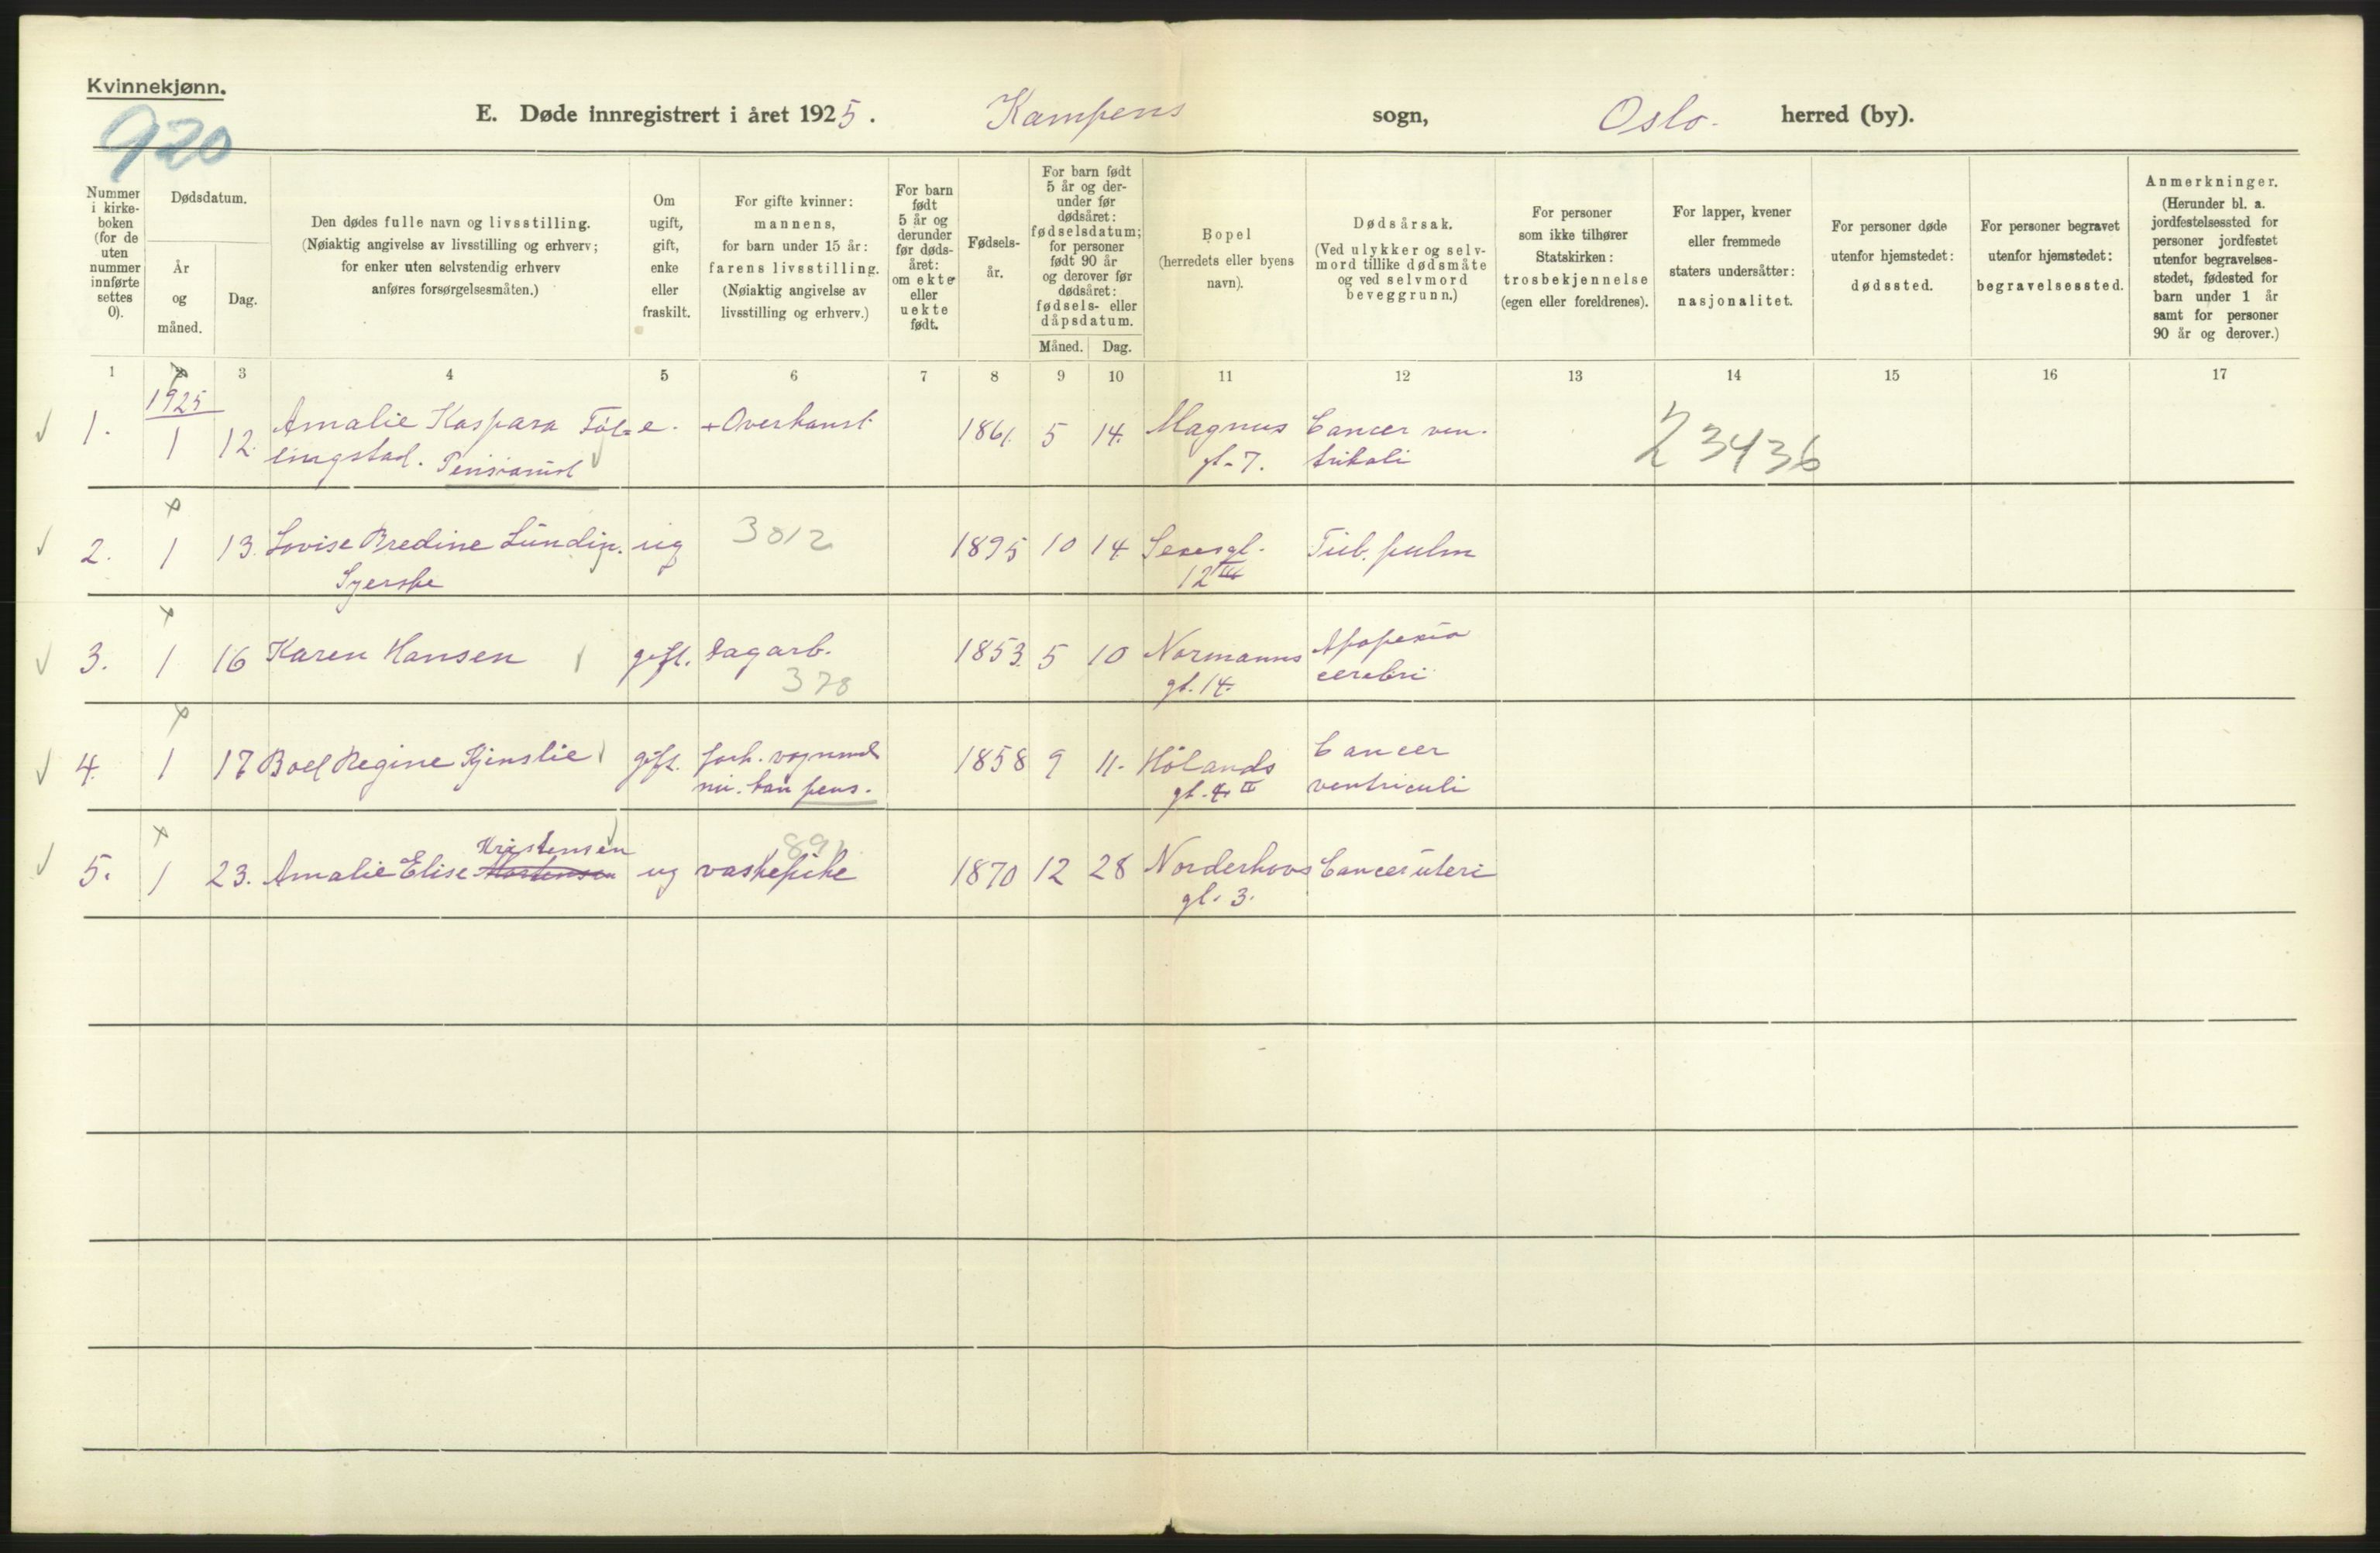 Kvinnekjønn.
920
E. Døde innregistrert i året 1925. Kampens sogn, Oslo. herred (by).
Nummer i kirke-boken (for de uten nummer innførte settes 0).
Dødsdatum.
År og måned.
Dag.
Den dødes fulle navn og livsstilling.
(Nøiaktig angivelse av livsstilling og erhverv;
for enker uten selvstendig erhverv
anføres forsørgelsesmåten.)
Om ugift, gift, enke eller fraskilt.
For gifte kvinner:
mannens,
for barn under 15 år:
farens livsstilling.
(Nøiaktig angivelse av
livsstilling og erhverv.)
For barn født 5 år og derunder før døds-året: om ekte eller uekte født.
Fødsels-år.
For barn født
5 år og der-
under før
dødsåret:
fødselsdatum;
for personer
født 90 år
og derover før
dødsåret:
fødsels- eller
dåpsdatum.
Måned. Dag.
Bopel
(herredets eller byens
navn).
Dødsårsak.
(Ved ulykker og selv-
mord tillike dødsmåte
og ved selvmord
beveggrunn.)
For personer
som ikke tilhører
Statskirken:
trosbekjennelse
(egen eller foreldrenes).
For lapper, kvener
eller fremmede
staters undersåtter:
nasjonalitet.
For personer døde
utenfor hjemstedet:
dødssted.
For personer begravet
utenfor hjemstedet:
begravelsessted.
Anmerkninger.
(Herunder bl. a.
jordfestelsessted for
personer jordfestet
utenfor begravelses-
stedet, fødested for
barn under 1 år
samt for personer
90 år og derover.)
1 2 3 4 5 6 7 8 9 10 11 12 13 14 15 16 17
1925
1. 1 12. Amalie Kaspara Föl= e. + Overkonst. 1861. 5 14. Magnus Cancer ven-
lingstad. Pensionist gt. 7. trikali
23436
2. 1 13. Lovise Bredine Lundin. ug 3012 1895 10 14 Sexesgt. Tub. pulm
Syerske 12 III
3. 1 16 Karen Hansen gift. Dagarb. 1853. 5 10 Normanns Apopexia
378 gt. 14. cerebri
4. 1 17 Boel Regine Kjenslie gift. forh. vognmd 1858 9 11. Hölands Cancer
nu. kom pens. gt. 4 II ventriculi
Kristensen 891
5. 1 23. Amalie Elise Mortensen ug vaskepike 1870 12 28 Norderhovs Cancer uteri
gt. 3.